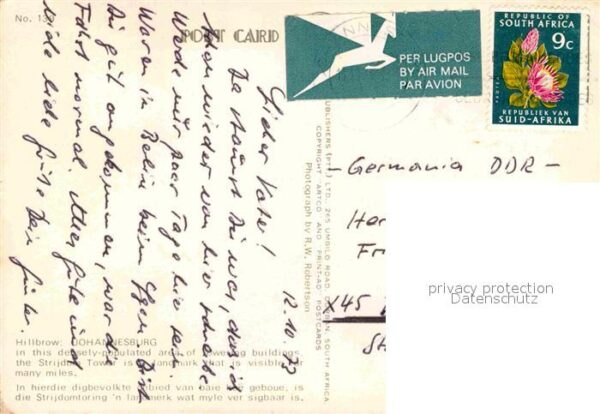 No. 13
POST CARD
12.10.73
Lieber Vater!
Da staunst Du was, daß ich
schon wieder von hier schreibe.
Werde nur paar Tage hier sein.
Waren in
gut angekommen, war die
Fahrt normal. Alles Gute und
liebe Grüße Dein
PER LUGPOS
BY AIR MAIL
PAR AVION
REPUBLIC OF
SOUTH AFRICA
9c
PROTEA
REPUBLIEK VAN
SUID-AFRIKA
- Germania DDR -
Her
Fr
X45
St
privacy protection
Datenschutz
PUBLISHERS (PTY.) LTD., 265 UMBILO ROAD, DURBAN, SOUTH AFRICA
COPYRIGHT "ARTCO" AND "PRINT-AD" POSTCARDS
Photograph by R.W. Robertson
Hillbrow: JOHANNESBURG
in this densely-populated area of towering buildings,
the Strijdom Tower is a landmark that is visible for
many miles.
In hierdie digbevolkte gebied van baie hoë geboue, is
die Strijdomtoring 'n landmerk wat myle ver sigbaar is.